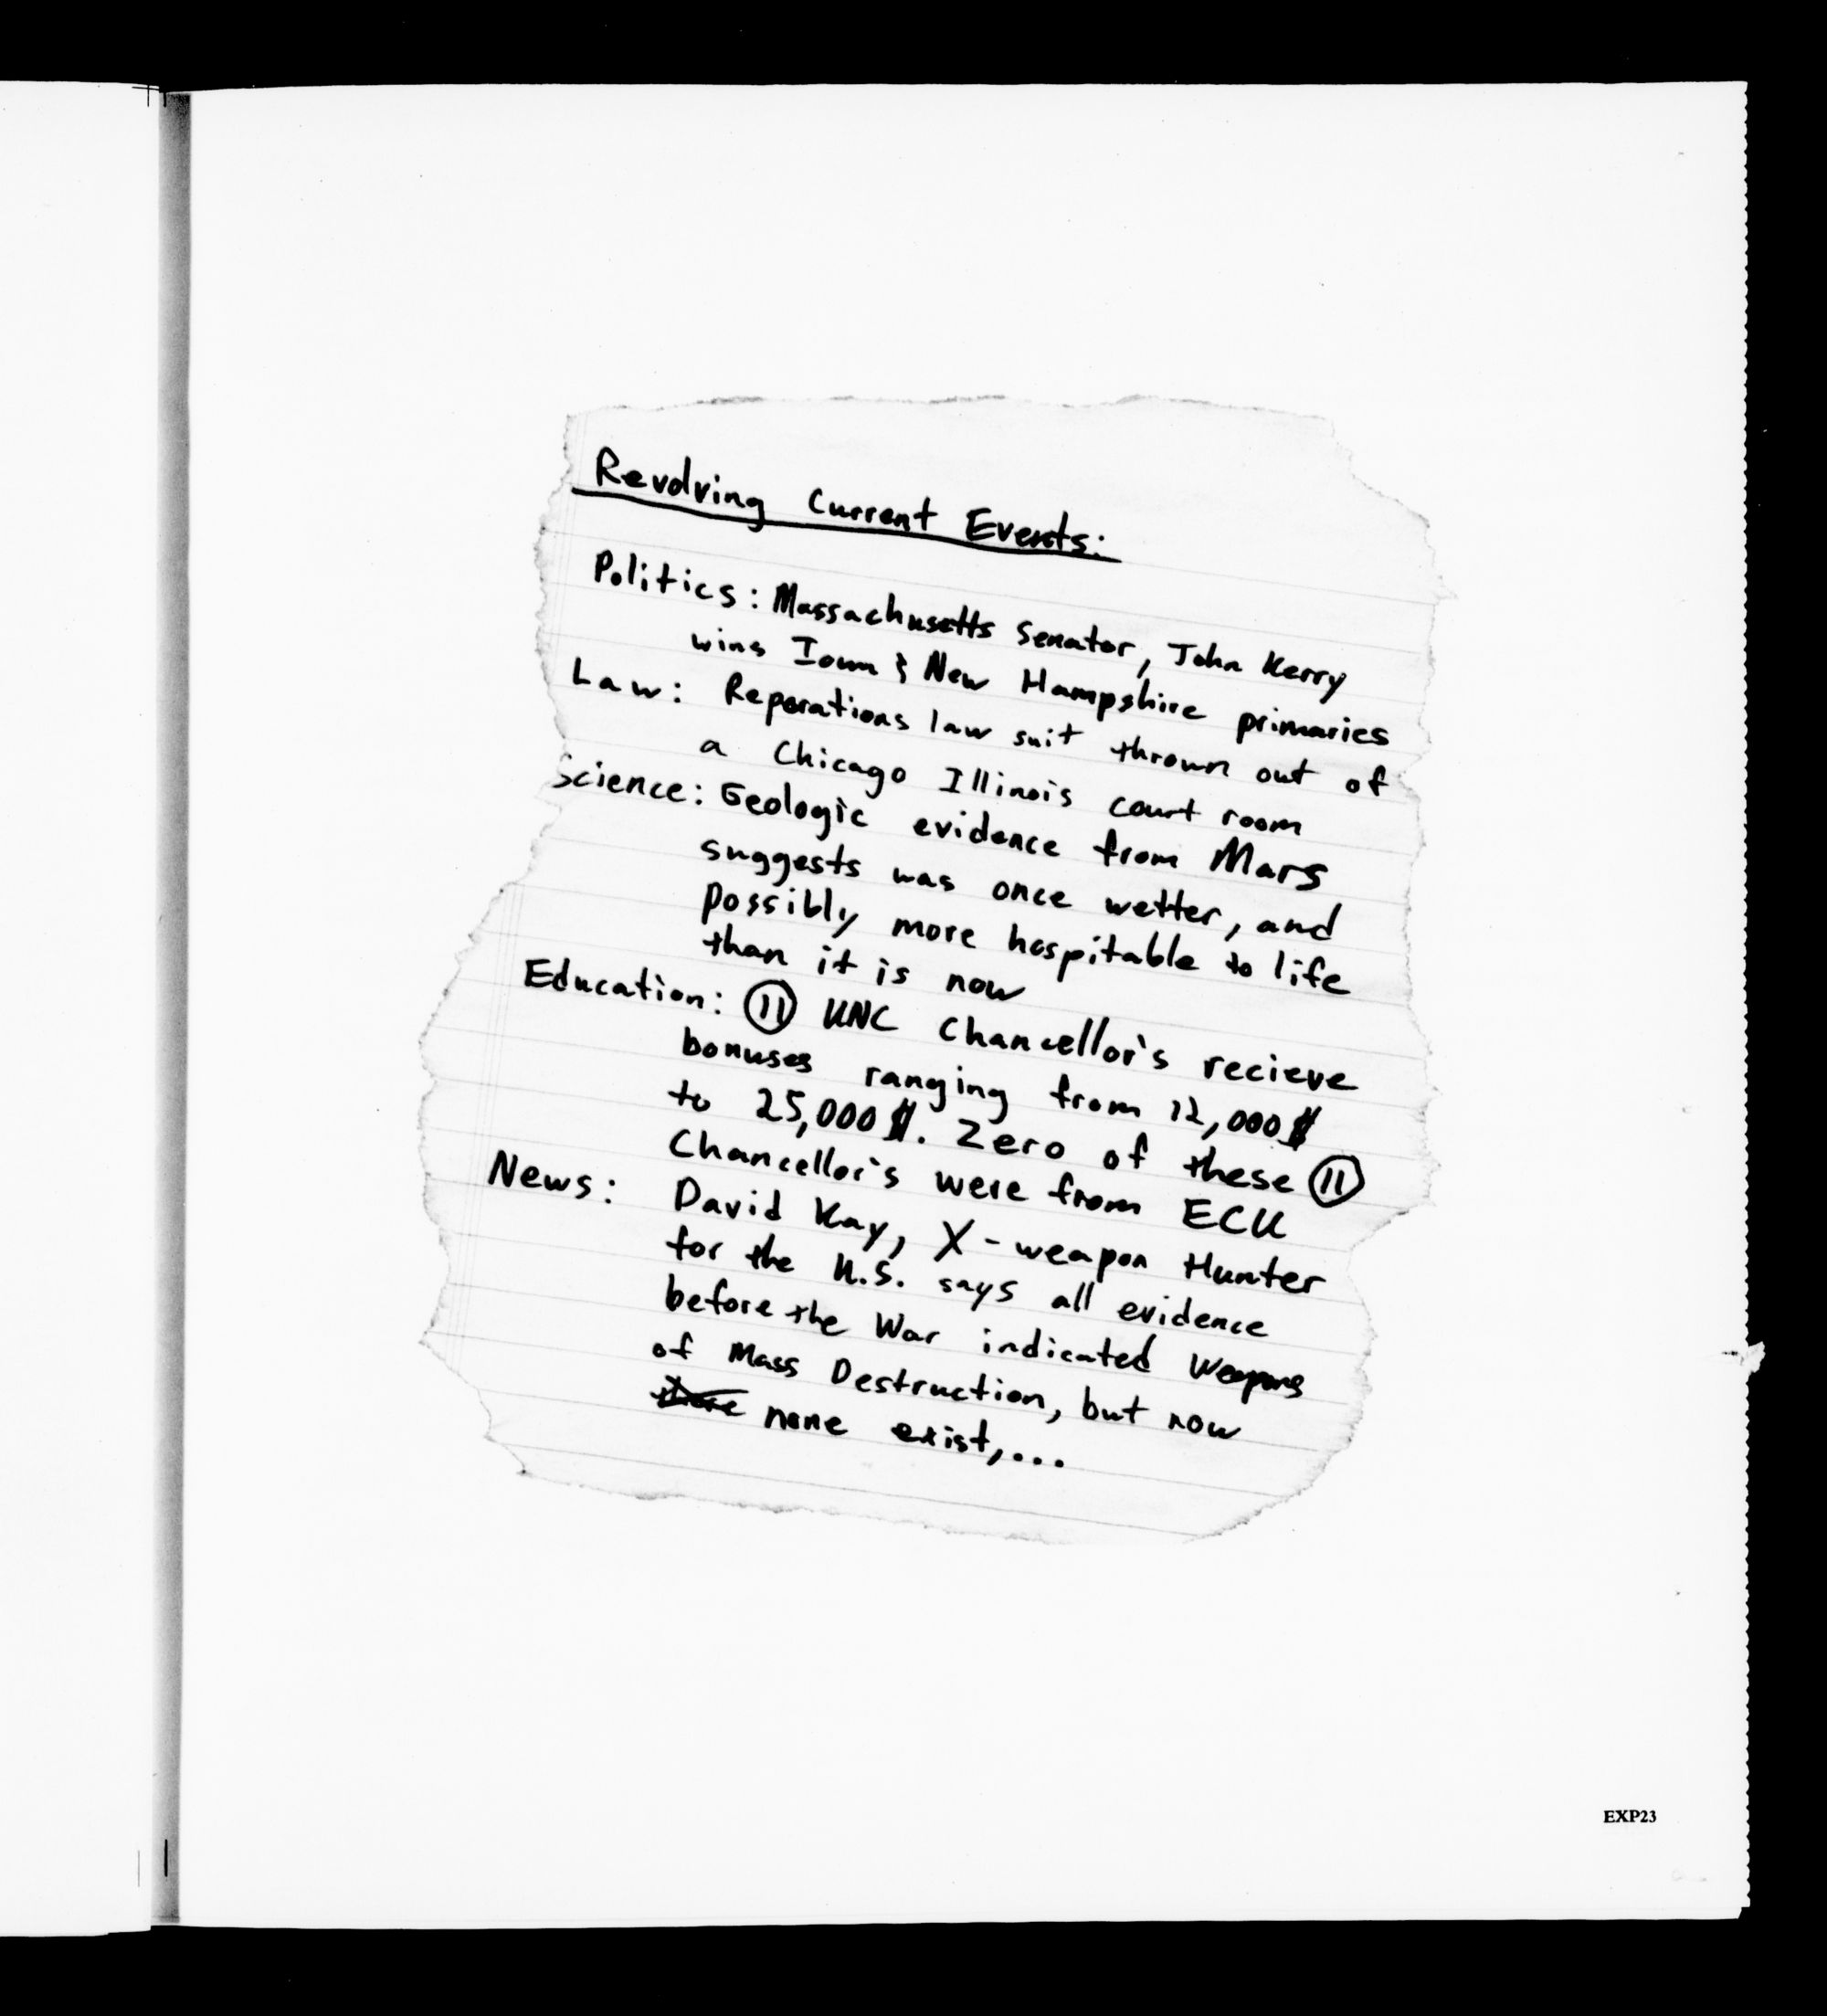 Revolving Current Events:
Politics: Massachusetts Senator, John Kerry
wins Iowa & New Hampshire primaries
Law: Reparations law suit thrown out of
a Chicago Illinois court room
Science: Geologic evidence from Mars
suggests was once wetter, and
possibly more hospitable to life
than it is now
Education: 11 UNC Chancellor's recieve
bonuses ranging from 12,000$
to 25,000$. Zero of these 11
Chancellor's were from ECU
News: David Kay, X-weapon Hunter
for the U.S. says all evidence
before the War indicated Weapons
of Mass Destruction, but now
none exist,...
EXP23